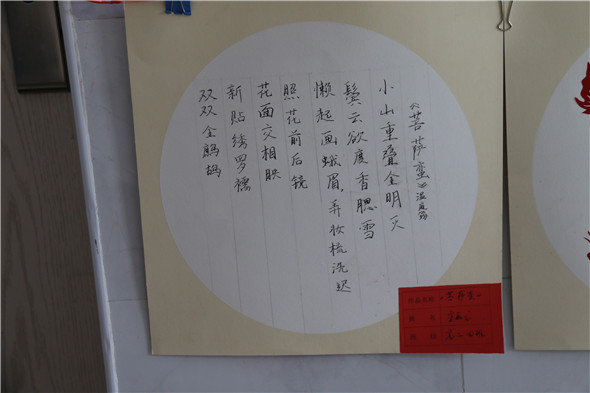 《菩萨蛮》温庭筠
小山重叠金明灭
鬓云欲度香腮雪
懒起画蛾眉,弄妆梳洗迟
照花前后镜
花面交相映
新贴绣罗襦
双双金鹧鸪
作品名称 《菩萨蛮》
姓名
班级